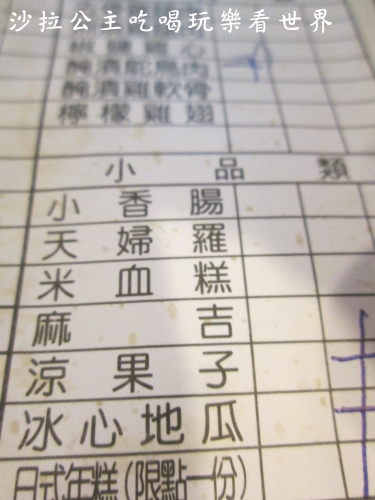 沙拉公主吃喝玩樂看世界
椒鹽雞心
醃漬鴕鳥肉
醃漬雞軟骨
檸檬雞翅
小品類
小香腸
天婦羅
米血糕
麻吉
涼果子
冰心地瓜
日式年糕(限點一份)